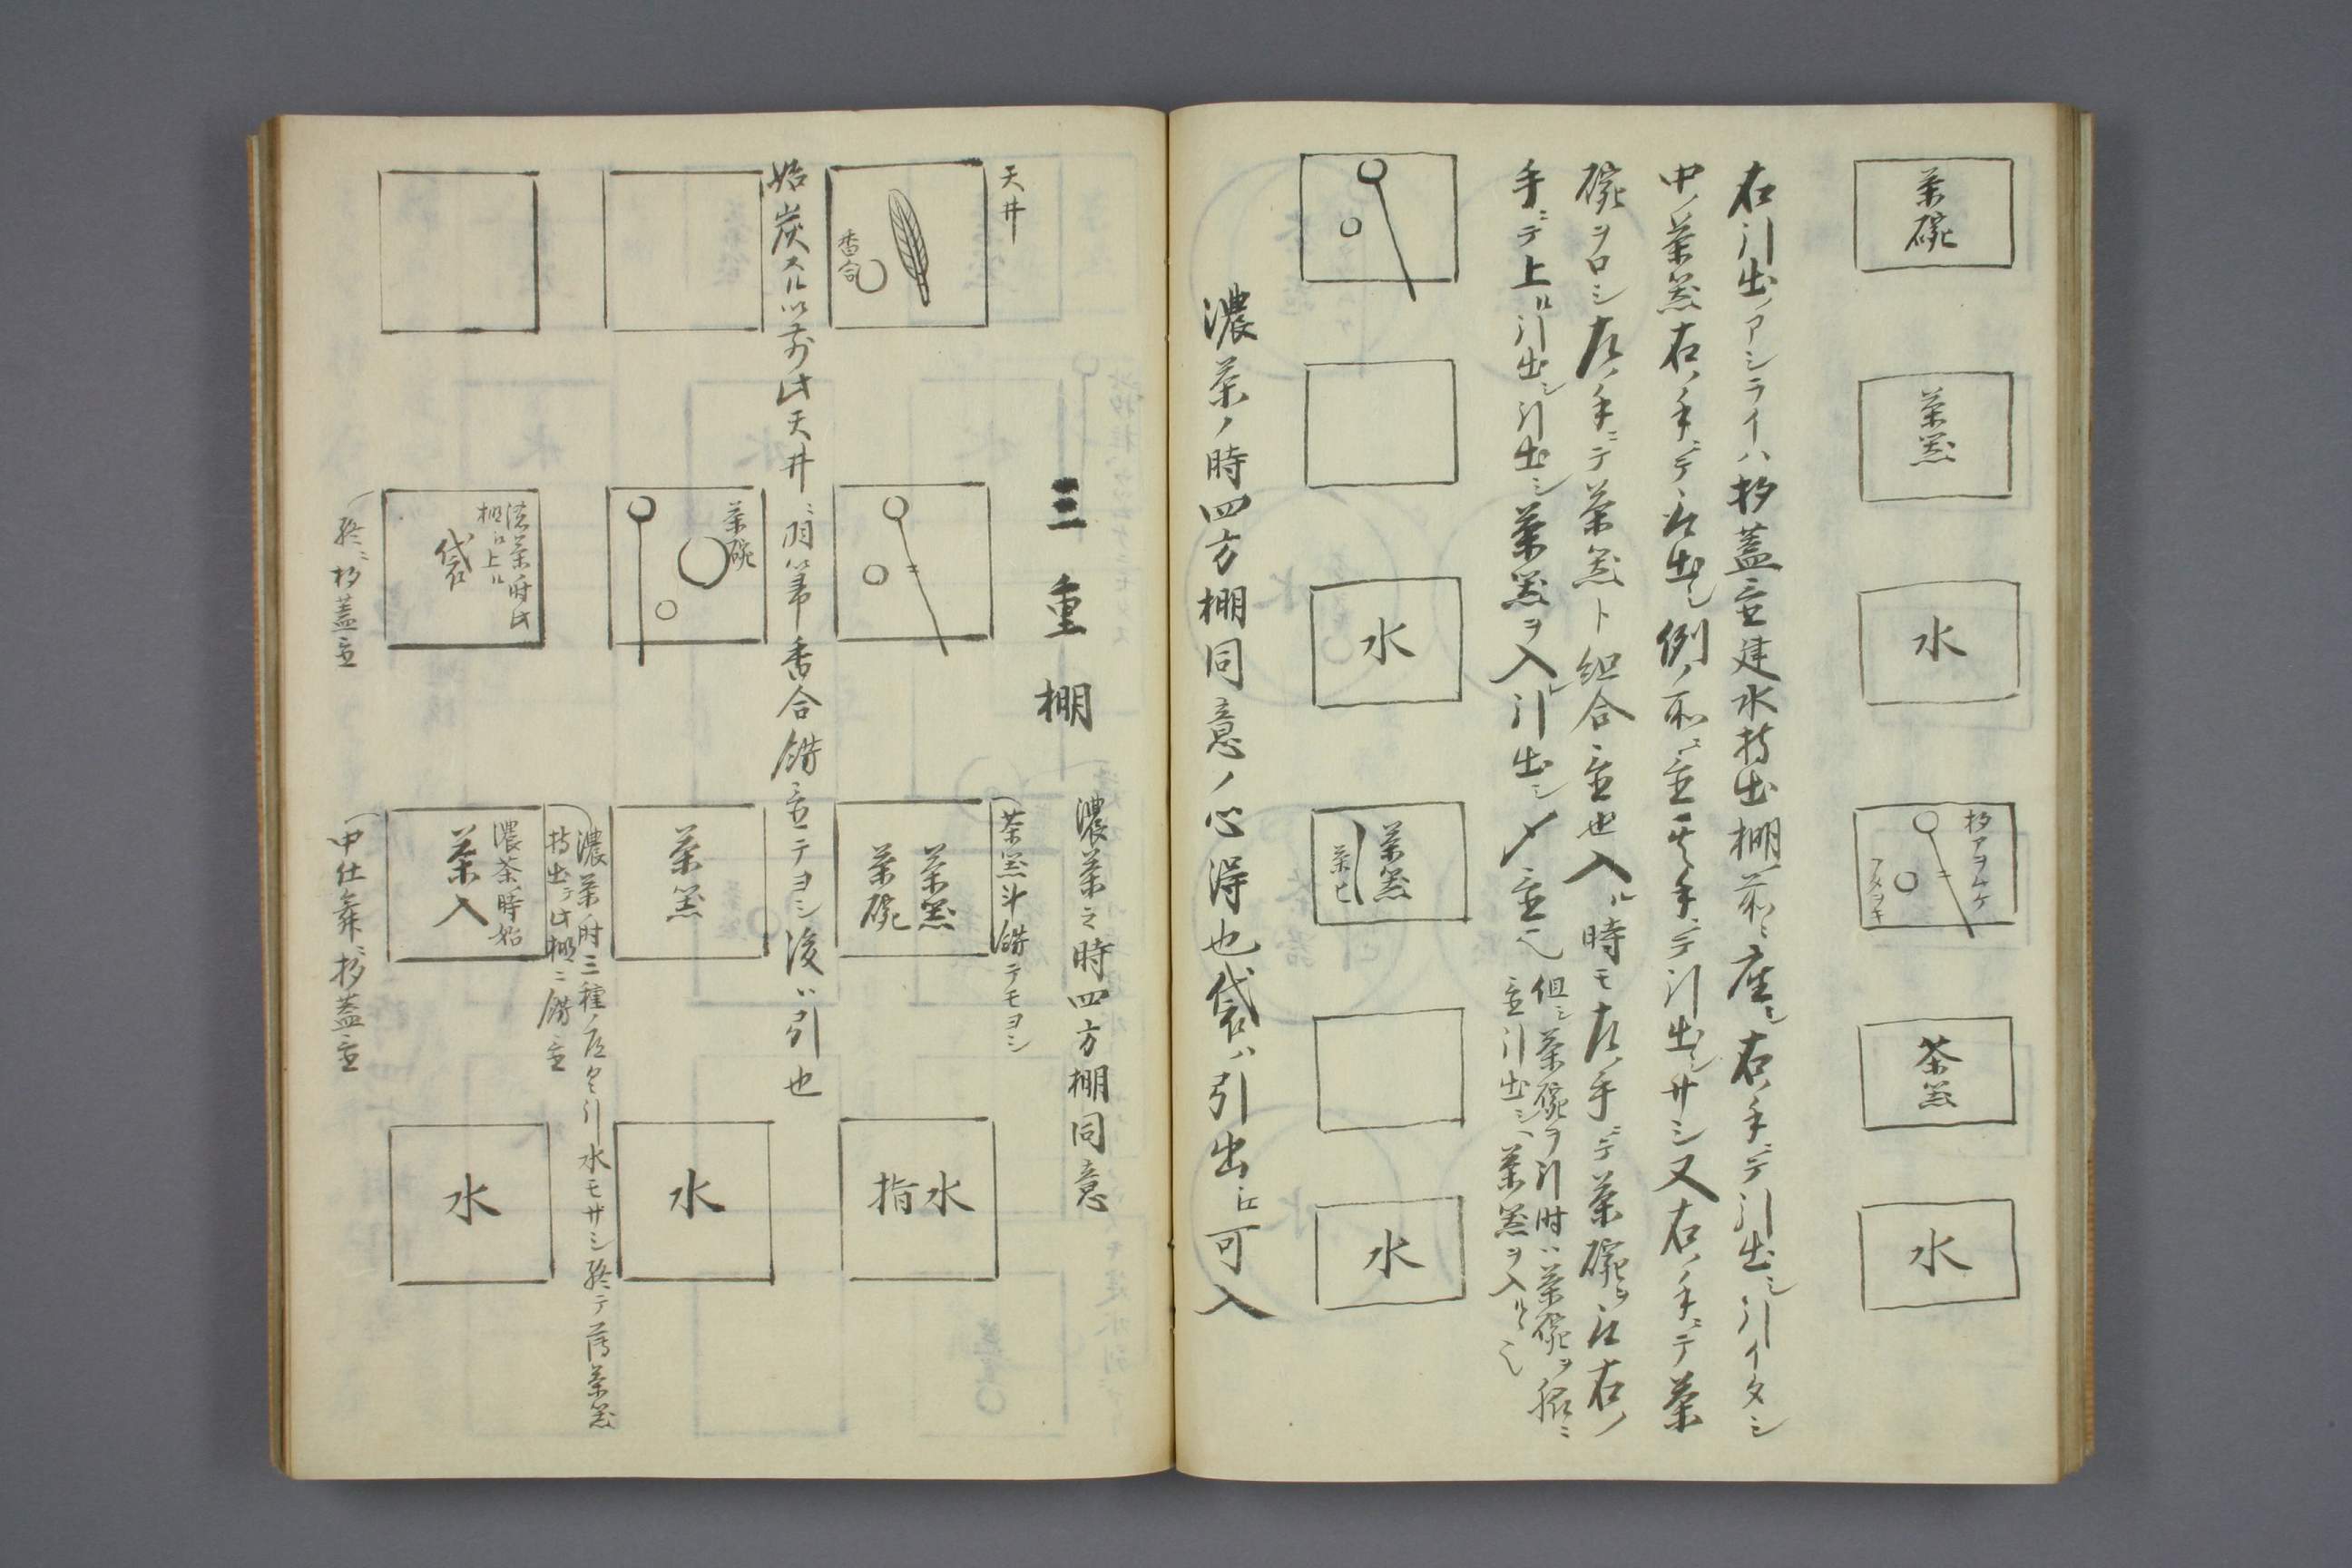 茶碗
茶器
水
杓アヲムケ
フタヲキ
茶器
水
右引出ノアシライハ杓蓋置建水持出棚前ニ座シ右ノ手ニテ引出シ引イタシ
中ノ茶器右ノ手ニテ取出シ例ノ所ニ置其手ニテ引出シサシ又右ノ手ニテ茶
碗ヲロシ左ノ手ニテ茶器ト組合置也入ル時モ左ノ手ニテ茶碗ヲ取右ノ
手ニテ上ル引出シ引出シ茶器ヲ入レ引出シ〆置也
但シ茶碗ヲ引時ハ茶碗ヲ脇ニ
置引出シ茶器ヲ入ルヽ也
水
茶器
茶匕
水
濃茶ノ時四方棚同意ノ心得也袋ハ引出江可入
三重棚
濃茶之時四方棚同意
天井
香合
茶器斗餝テモヨシ
茶器
茶碗
水指
始炭スル以前此天井ニ羽箒香合餝置テヨシ後ハ引也
茶碗
茶器
水
濃茶時三種ノ盆ヲ引水モサシ終テ薄茶器
持出テ此棚ニ餝置
濃茶時此
棚江上ル
袋
濃茶時始
茶入
水
終ニ杓蓋置
中仕舞ニ杓蓋置